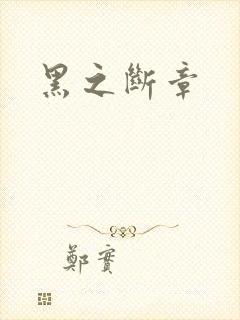 黑之斷章
鄭實